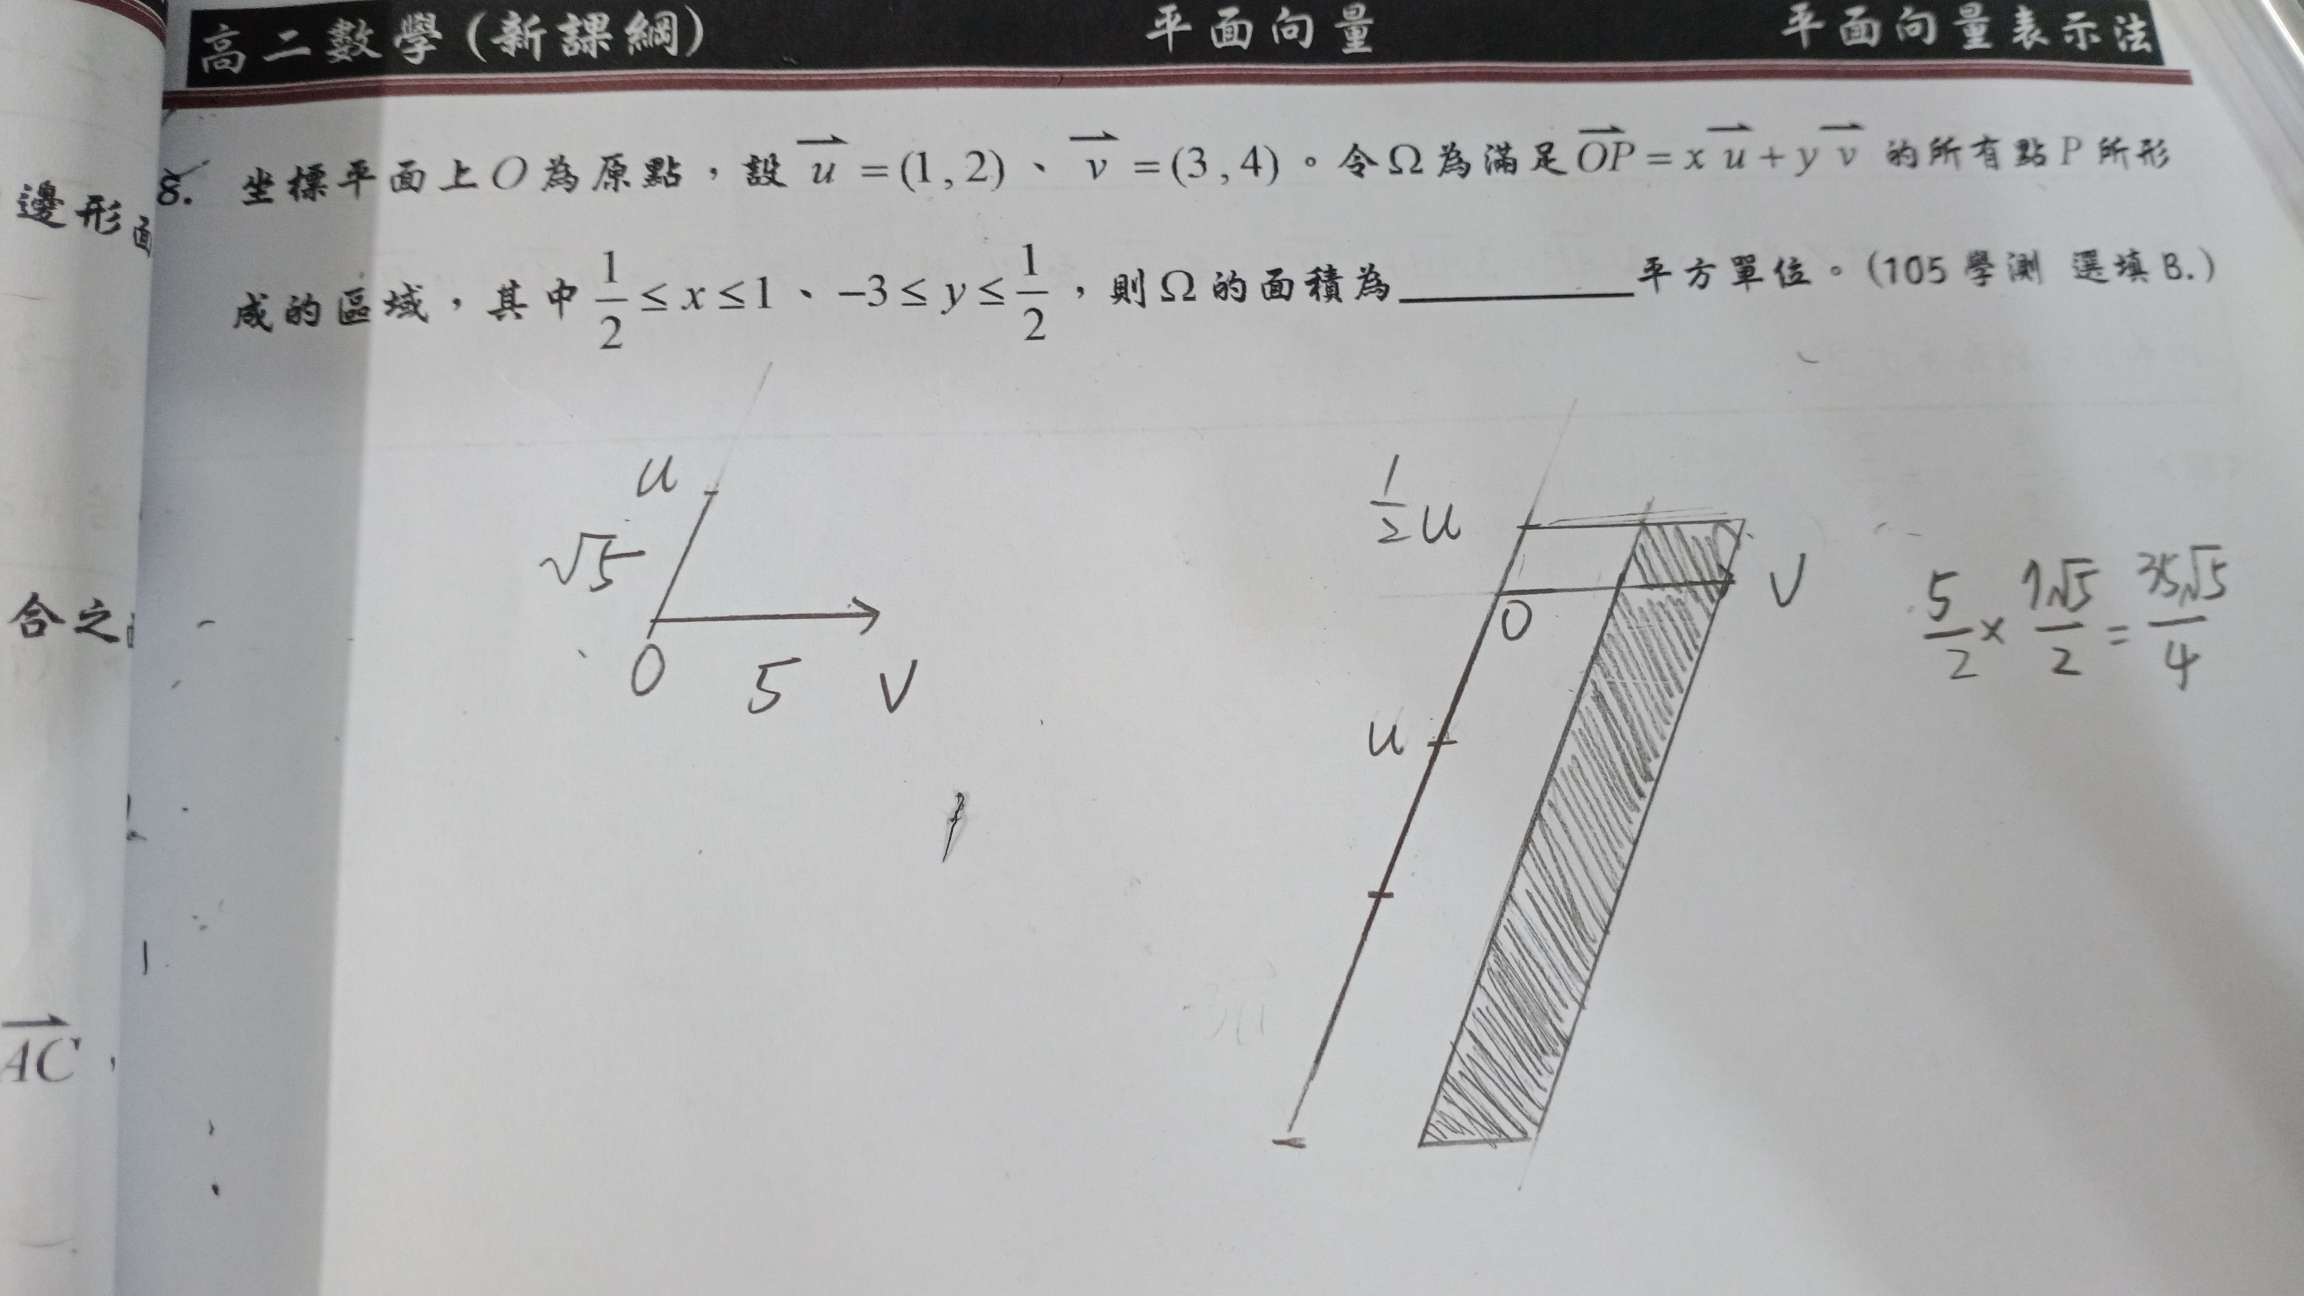 高二數學(新課綱) 平面向量 平面向量表示法
邊形面
8. 坐標平面上O為原點，設 $\overrightarrow{u}$ = (1, 2)、$\overrightarrow{v}$ = (3, 4)。令Ω為滿足 $\overrightarrow{OP}$ = x$\overrightarrow{u}$ + y$\overrightarrow{v}$ 的所有點P所形
成的區域，其中 $\frac{1}{2}$ ≤ x ≤ 1、−3 ≤ y ≤ $\frac{1}{2}$，則Ω的面積為________平方單位。(105學測 選填B.)
u
√5
O
5
v
$\frac{1}{2}$u
O
v
u
$\frac{5}{2}$ × $\frac{7√5}{2}$ = $\frac{35√5}{4}$
合之
$\overrightarrow{AC}$，